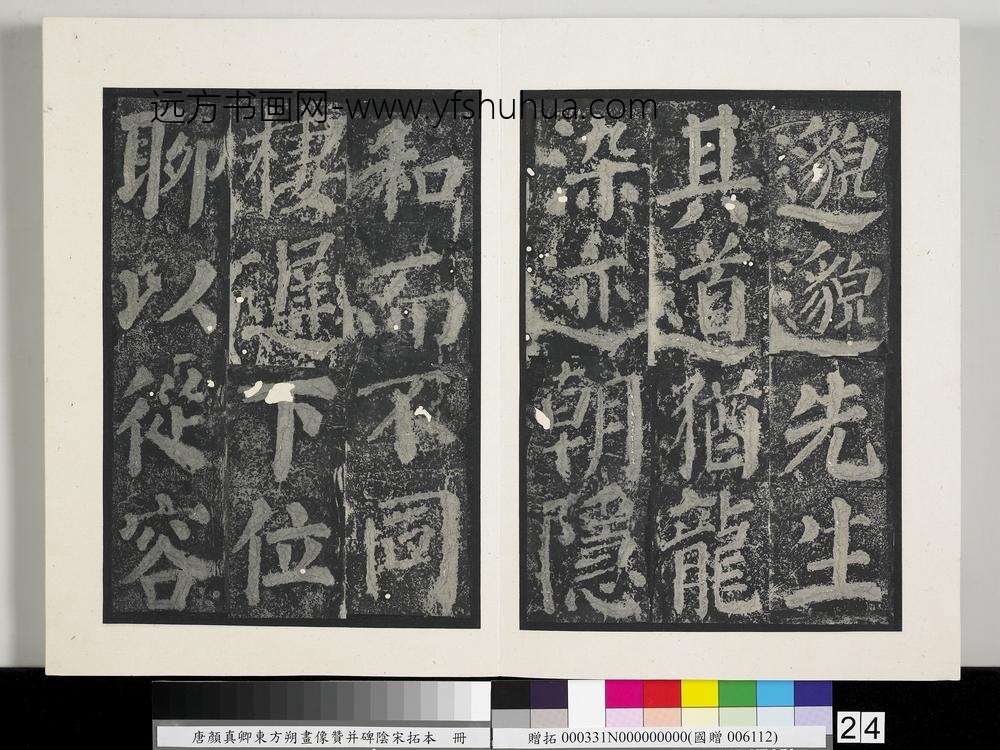 远方书画网-www.yfshuhua.com
邈邈先生
其道猶龍
染迹朝隱
和而不同
棲遲下位
聊以從容
唐顏真卿東方朔畫像贊并碑陰宋拓本 冊
贈拓 000331N000000000(國贈 006112)
24